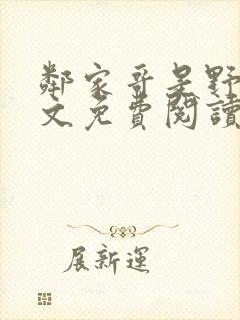 鄰家哥呈野
文免費閱讀
展新運